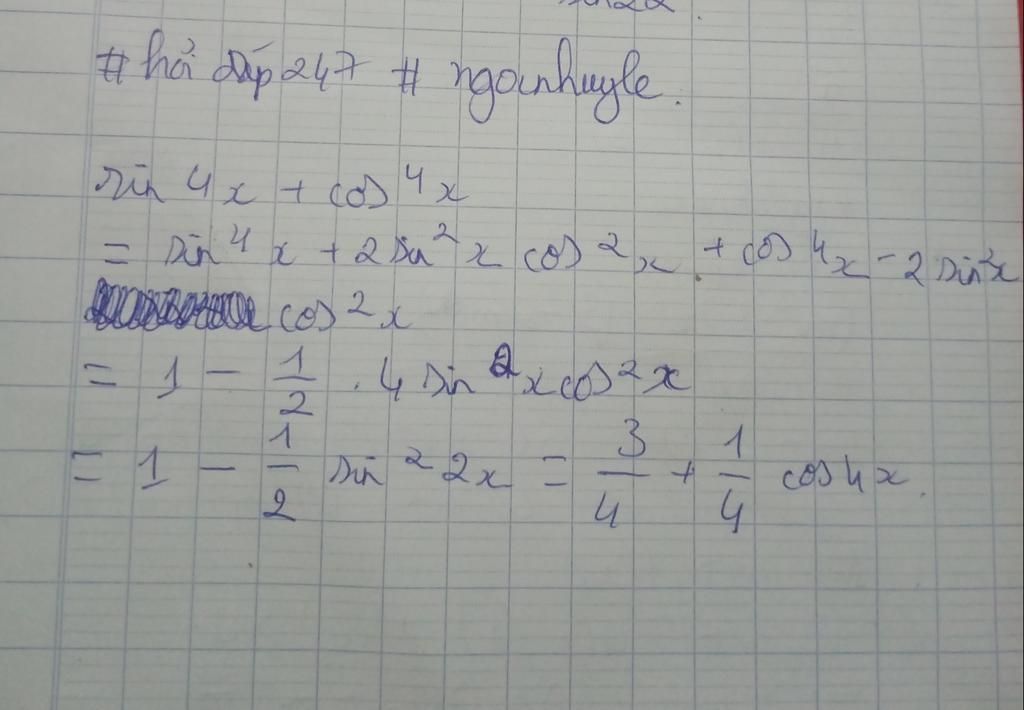 sin2α.
# hỏi đáp 247 # ngocnhuyle.
sin 4x + cos⁴x
= sin⁴x + 2sin²x cos²x + cos⁴x - 2sin²x
cos²x
= 1 - 1/2 . 4sin²xcos²x
= 1 - 1/2 sin²2x = 3/4 + 1/4 cos4x.